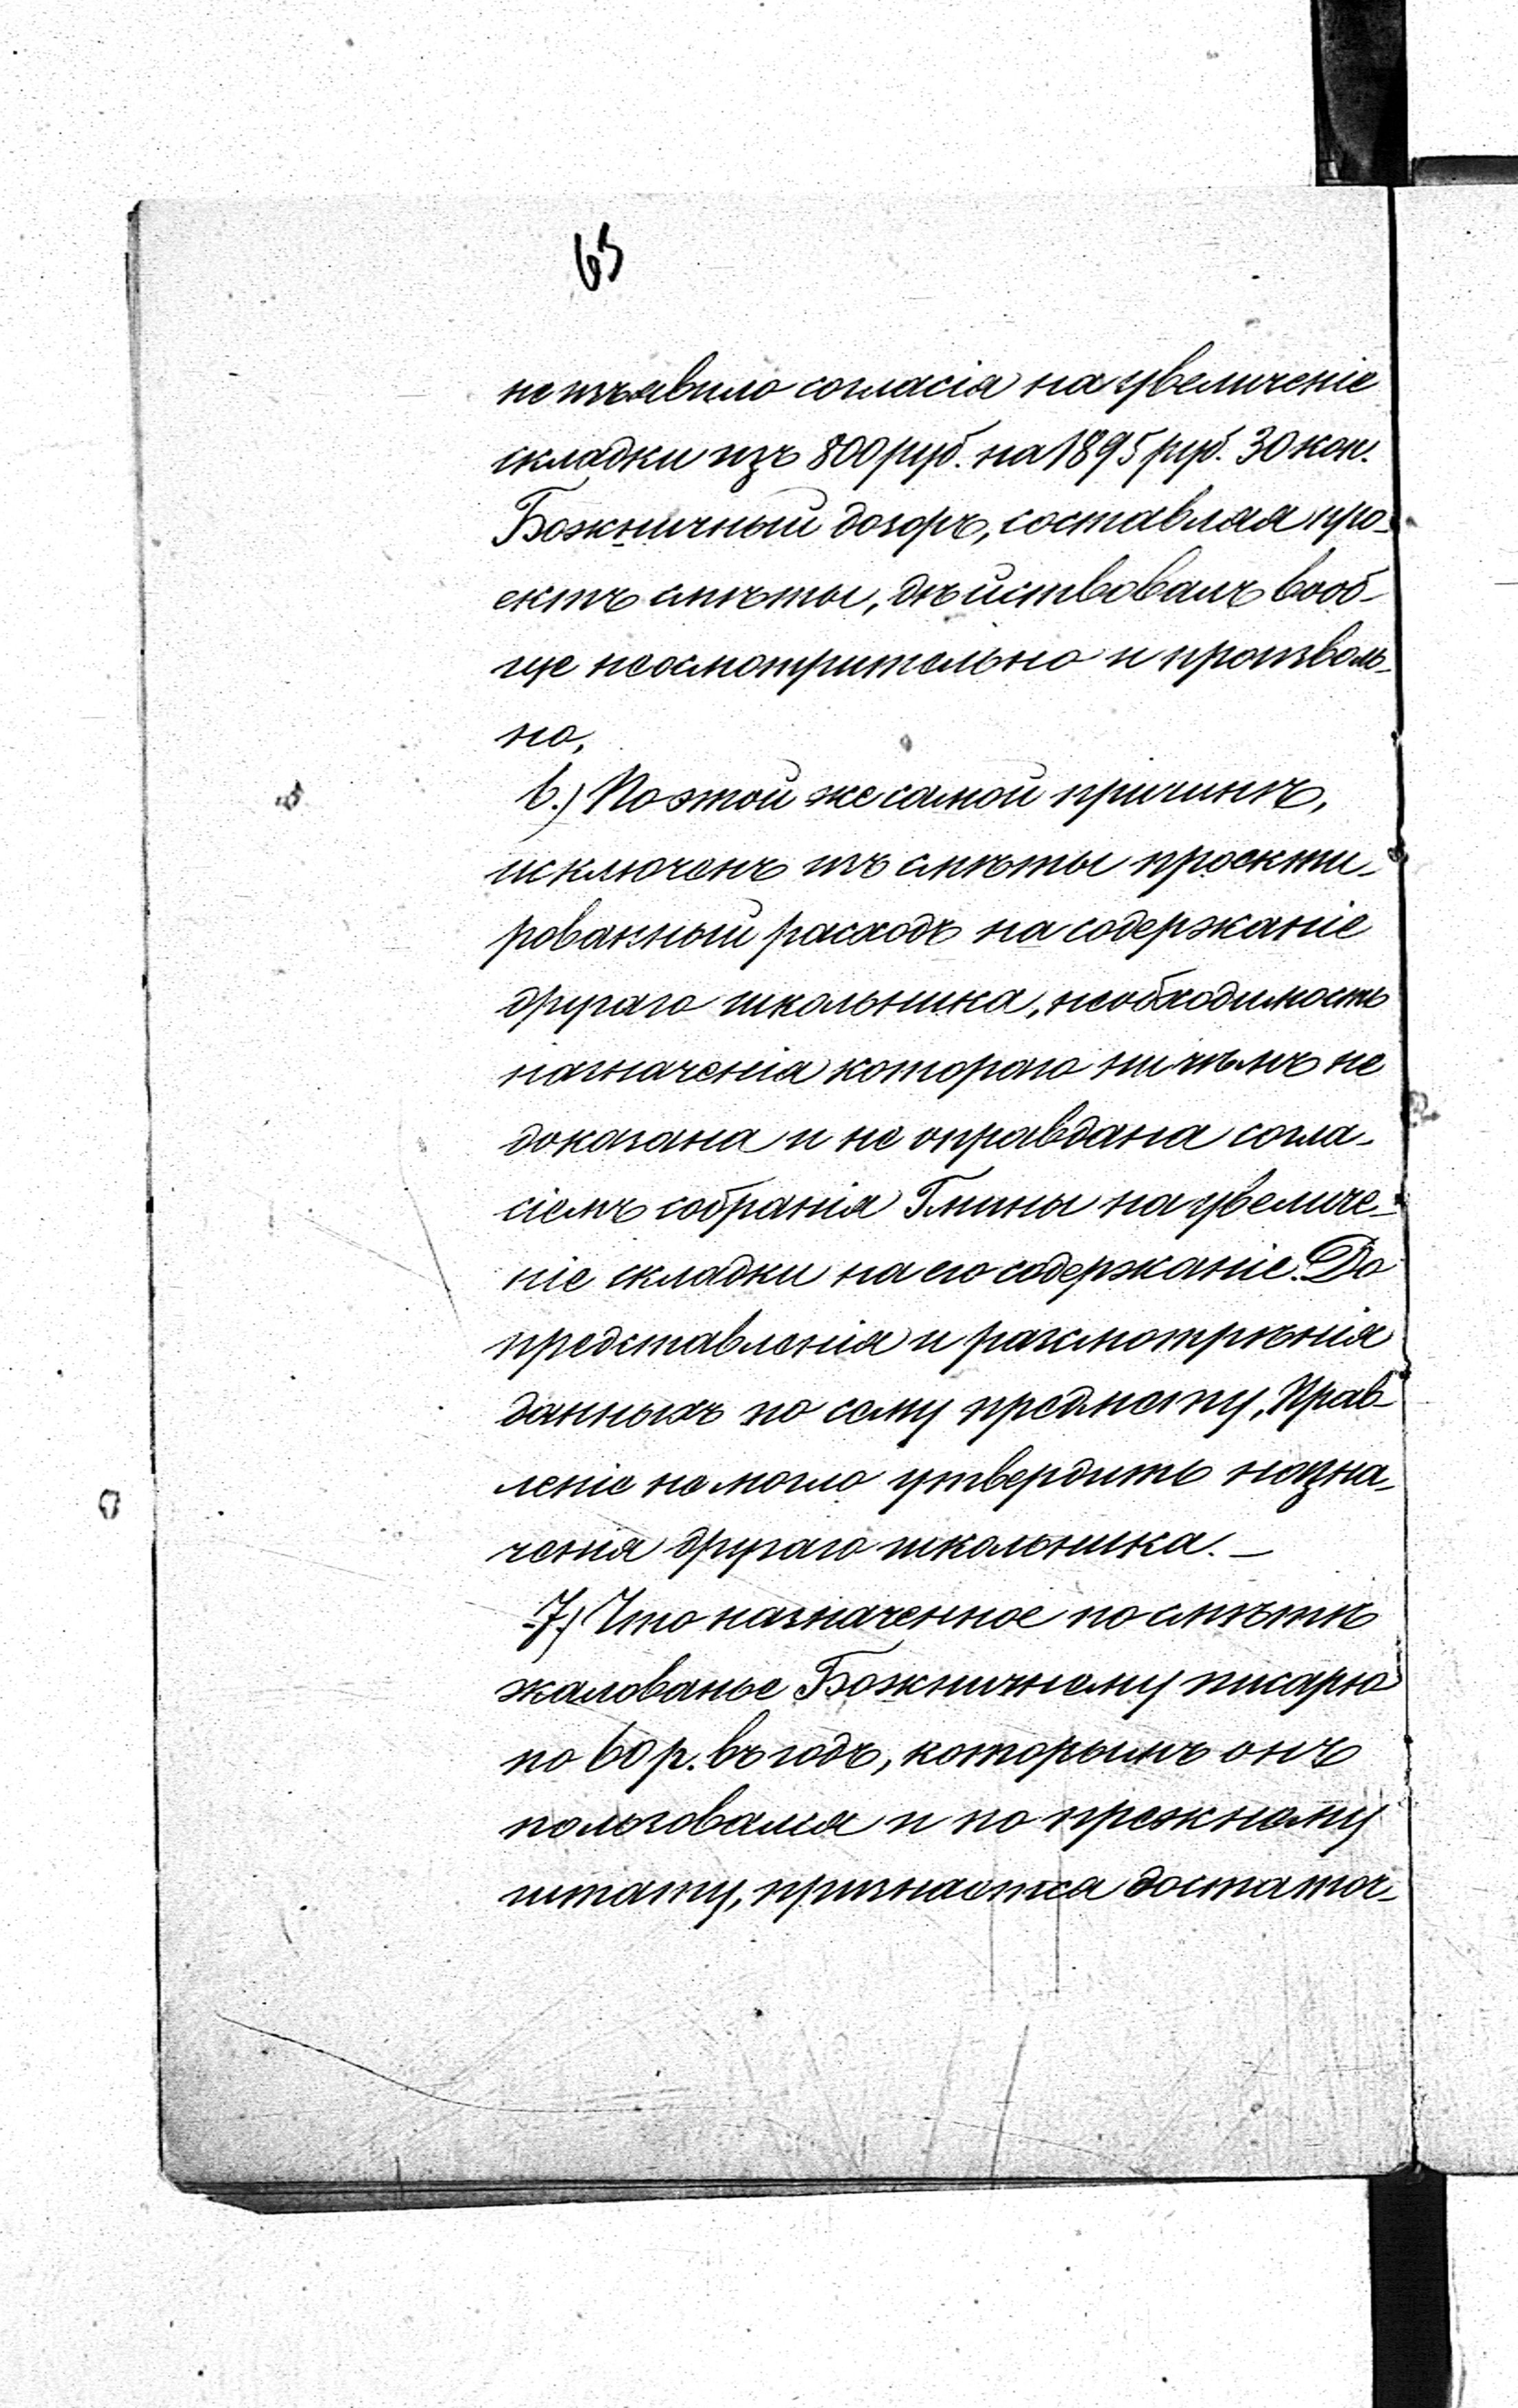 65
не изъявило согласія на увеличеніе
складки изъ 800 руб. на 1895 руб. 30 коп.
Божничный дозоръ, составляя про-
ектъ смѣты, дѣйствовалъ вооб-
ще неосмотрительно и произволь-
но,
6.) По этой же самой причинѣ,
исключенъ изъ смѣты проекти-
рованный расходъ на содержаніе
другаго школьника, необходимость
назначенія котораго ни чѣмъ не
доказана и не оправдана согла-
сіемъ собранія Гмины на увеличе-
ніе складки на его содержаніе. До
представленія и разсмотрѣнія
данныхъ по сему предмету, Прав-
леніе не могло утвердить назна-
ченія другаго школьника. —
7.) Что назначенное по смѣтѣ
жалованье Божничному писарю
по 60 р. въ годъ, которымъ онъ
пользовался и по прежнему
штату, признается достаточ-